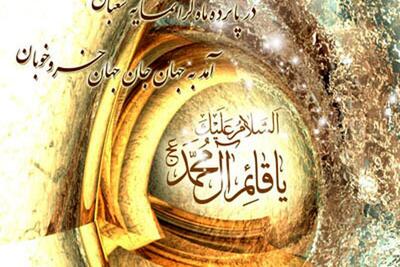 در پانزده ماه گرانمایه شعبان
آمد به جهان جان جهان خسرو خوبان
السلام علیک
یا قائم آل محمد عج